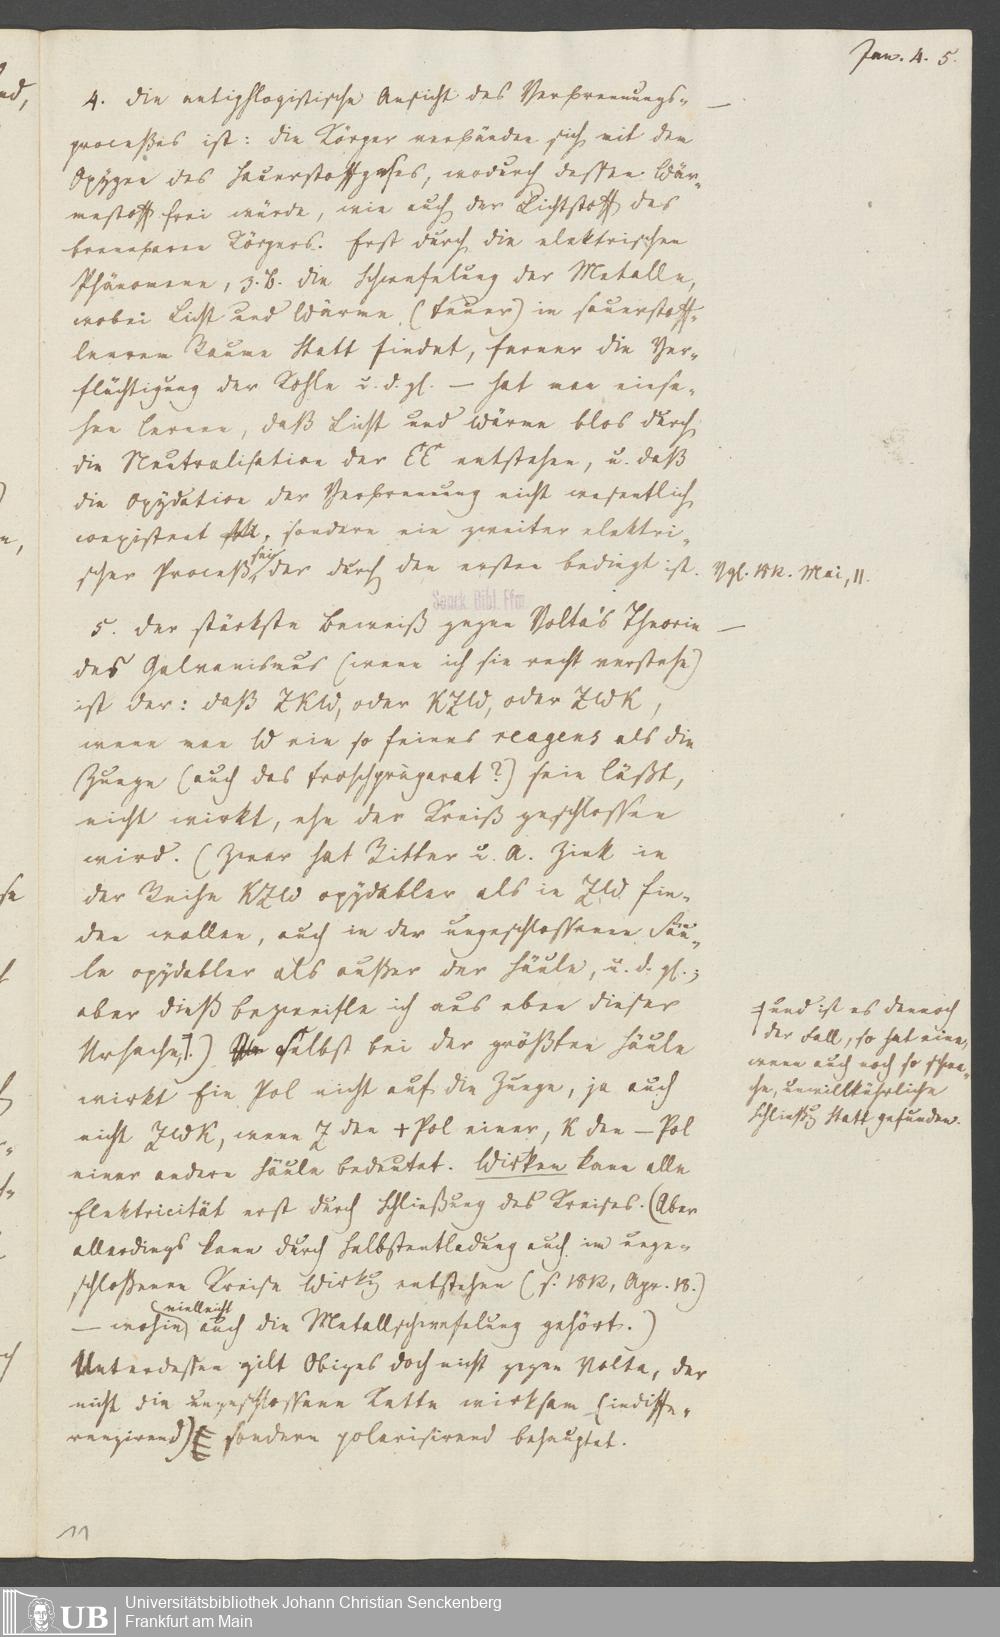 Jan. 4. 5.
4. Die antiphlogistische Ansicht des Verbrennungs- —
proceßes ist: die Körper verbänden sich mit dem
Oxygen des Sauerstoffgases, wodurch dessen Wär-
mestoff frei würde, wie auch der Lichtstoff des
brennbaren Körpers. Erst durch die elektrischen
Phänomene, z. B. die Schwefelung der Metalle,
wobei Licht und Wärme (Feuer) im sauerstoff-
leeren Raume Statt findet, ferner die Ver-
flüchtigung der Kohle u. d. gl. — hat man einse-
hen lernen, daß Licht und Wärme blos durch
die Neutralisation der EE entstehen, u. daß
die Oxydation der Verbrennung nicht wesentlich
coexistent, sondern ein zweiter elektri-
scher Proceß sei, der durch den ersten bedingt ist. Vgl. 1812. Mai, 11.
Senck. Bibl. Ffm.
5. Der stärkste Beweiß gegen Volta's Theorie —
des Galvanismus (wenn ich sie recht verstehe)
ist der: daß ZKW, oder KZW, oder ZWK,
wenn man W ein so feines reagens als die
Zunge (auch das Froschpräparat?) sein läßt,
nicht wirkt, ehe der Kreiß geschlossen
wird. (Zwar hat Ritter u. A. Zink in
der Reihe KZW oxydabler als in ZW fin-
den wollen, auch in der ungeschlossenen Säu-
le oxydabler als außer der Säule, u. d. gl.;
aber dieß bezweifle ich aus eben dieser
Ursache,ꝉ.) Selbst bei der größten Säule
wirkt Ein Pol nicht auf die Zunge, ja auch
nicht ZWK, wenn Z den + Pol einer, K den — Pol
einer andern Säule bedeutet. Wirken kann alle
Elektricität erst durch Schließung des Kreises. (Aber
allerdings kann durch Selbstentladung auch im unge-
schloßenen Kreise Wirkg entstehen (s. 1812, Apr. 18.)
— wohin vielleicht auch die Metallschwefelung gehört.)
Unterdessen gilt Obiges doch nicht gegen Volta, der
nicht die ungeschlossene Kette wirksam (indiffe-
renzirend) sondern polarisirend behauptet.
ꝉ und ist es dennoch
der Fall, so hat eine,
wenn auch noch so schwa-
che, unwillkührliche
Schließg Statt gefunden.
11
UB
Universitätsbibliothek Johann Christian Senckenberg
Frankfurt am Main